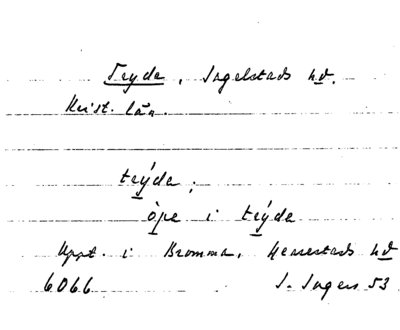 Tryde, Ingelstads hd.
Krist. län.
trýde;
òpe i trýde
Uppt. i Bromma, Herrestads hd
6066 J. Ingers 53